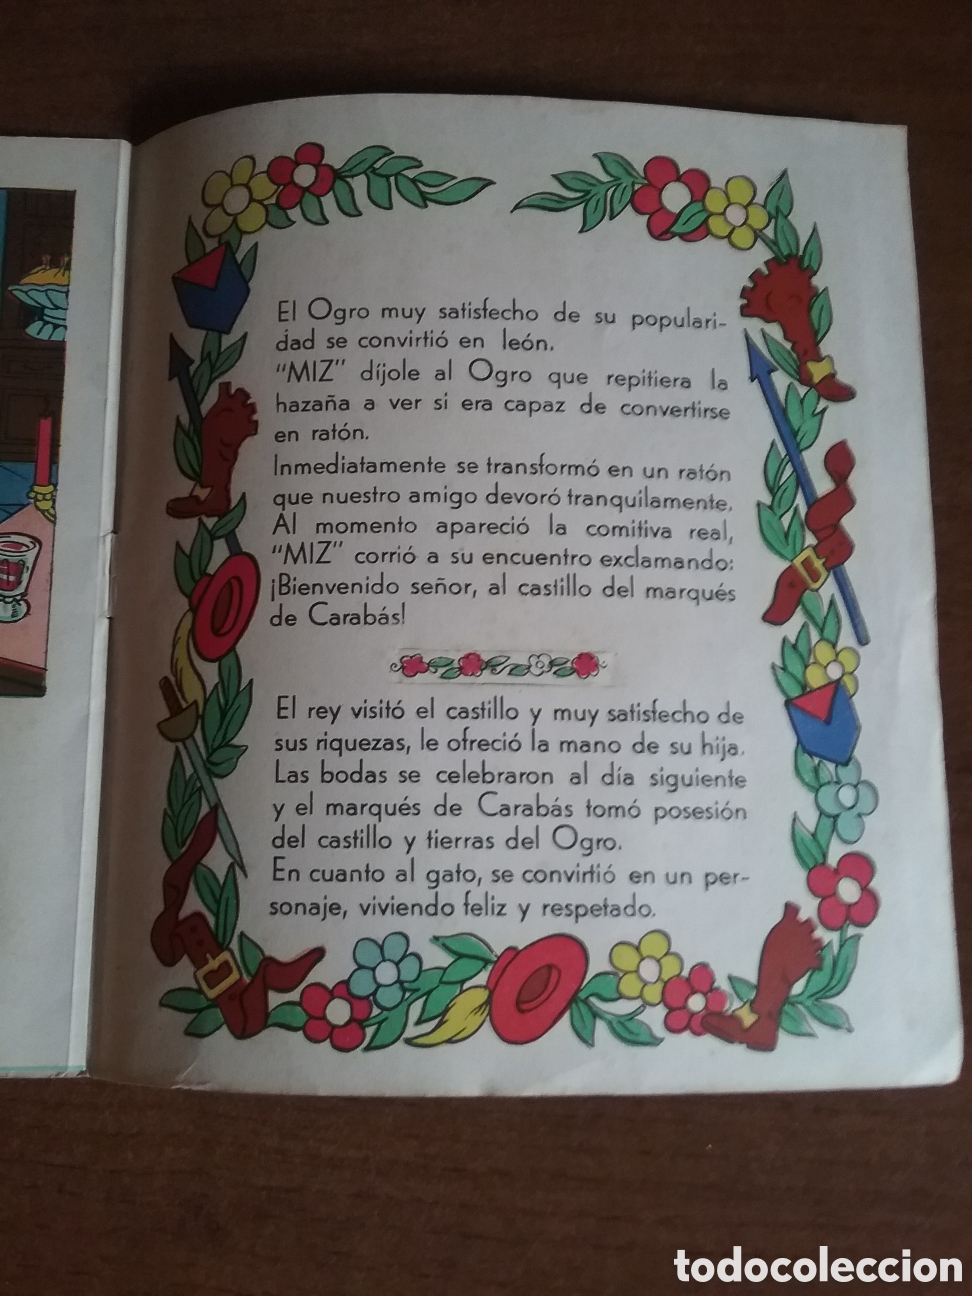 El Ogro muy satisfecho de su populari-
dad se convirtió en león.
"MIZ" díjole al Ogro que repitiera la
hazaña a ver si era capaz de convertirse
en ratón.
Inmediatamente se transformó en un ratón
que nuestro amigo devoró tranquilamente.
Al momento apareció la comitiva real,
"MIZ" corrió a su encuentro exclamando:
¡Bienvenido señor, al castillo del marqués
de Carabás!
El rey visitó el castillo y muy satisfecho de
sus riquezas, le ofreció la mano de su hija.
Las bodas se celebraron al día siguiente
y el marqués de Carabás tomó posesión
del castillo y tierras del Ogro.
En cuanto al gato, se convirtió en un per-
sonaje, viviendo feliz y respetado.
todocoleccion